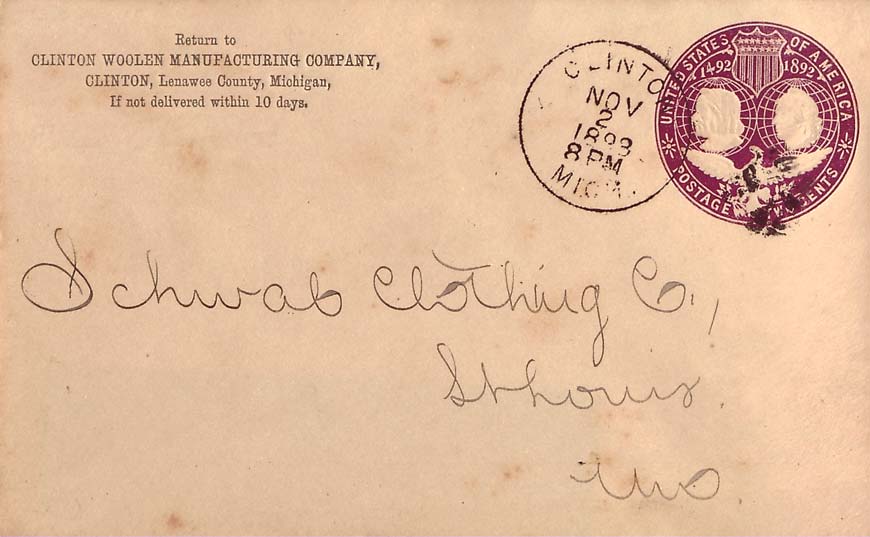 Return to
CLINTON WOOLEN MANUFACTURING COMPANY,
CLINTON, Lenawee County, Michigan,
If not delivered within 10 days.
CLINTON
NOV
2
1893
8 PM
MICH.
UNITED STATES OF AMERICA
1492 1892
POSTAGE TWO CENTS
Schwab Clothing Co.,
St Louis.
Mo.